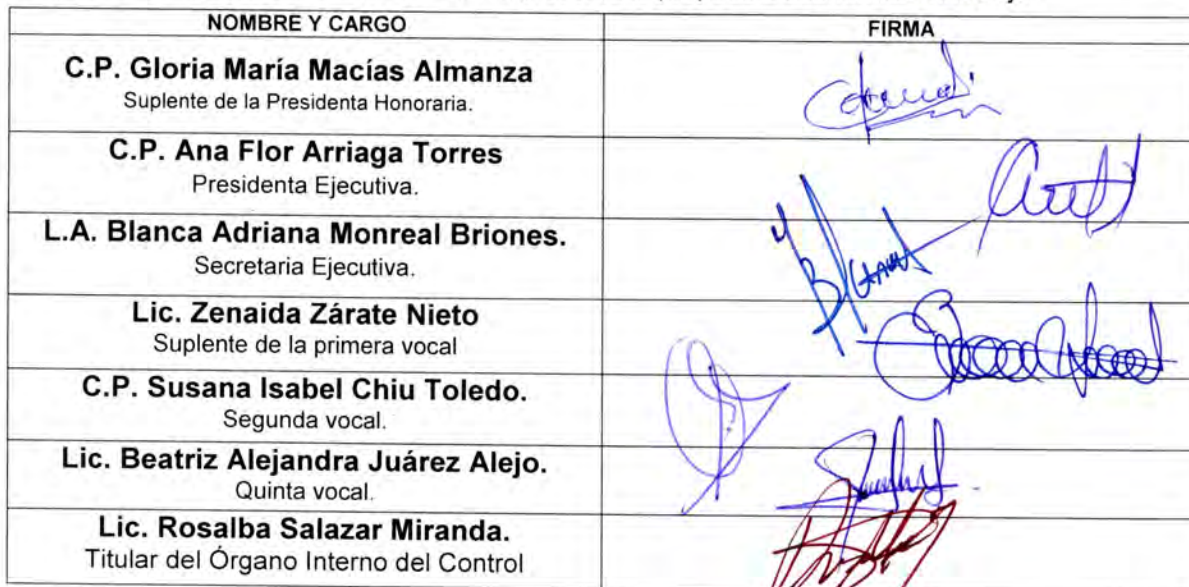 NOMBRE Y CARGO
FIRMA
C.P. Gloria María Macías Almanza
Suplente de la Presidenta Honoraria.
C.P. Ana Flor Arriaga Torres
Presidenta Ejecutiva.
L.A. Blanca Adriana Monreal Briones.
Secretaria Ejecutiva.
Lic. Zenaida Zárate Nieto
Suplente de la primera vocal
C.P. Susana Isabel Chiu Toledo.
Segunda vocal.
Lic. Beatriz Alejandra Juárez Alejo.
Quinta vocal.
Lic. Rosalba Salazar Miranda.
Titular del Órgano Interno del Control